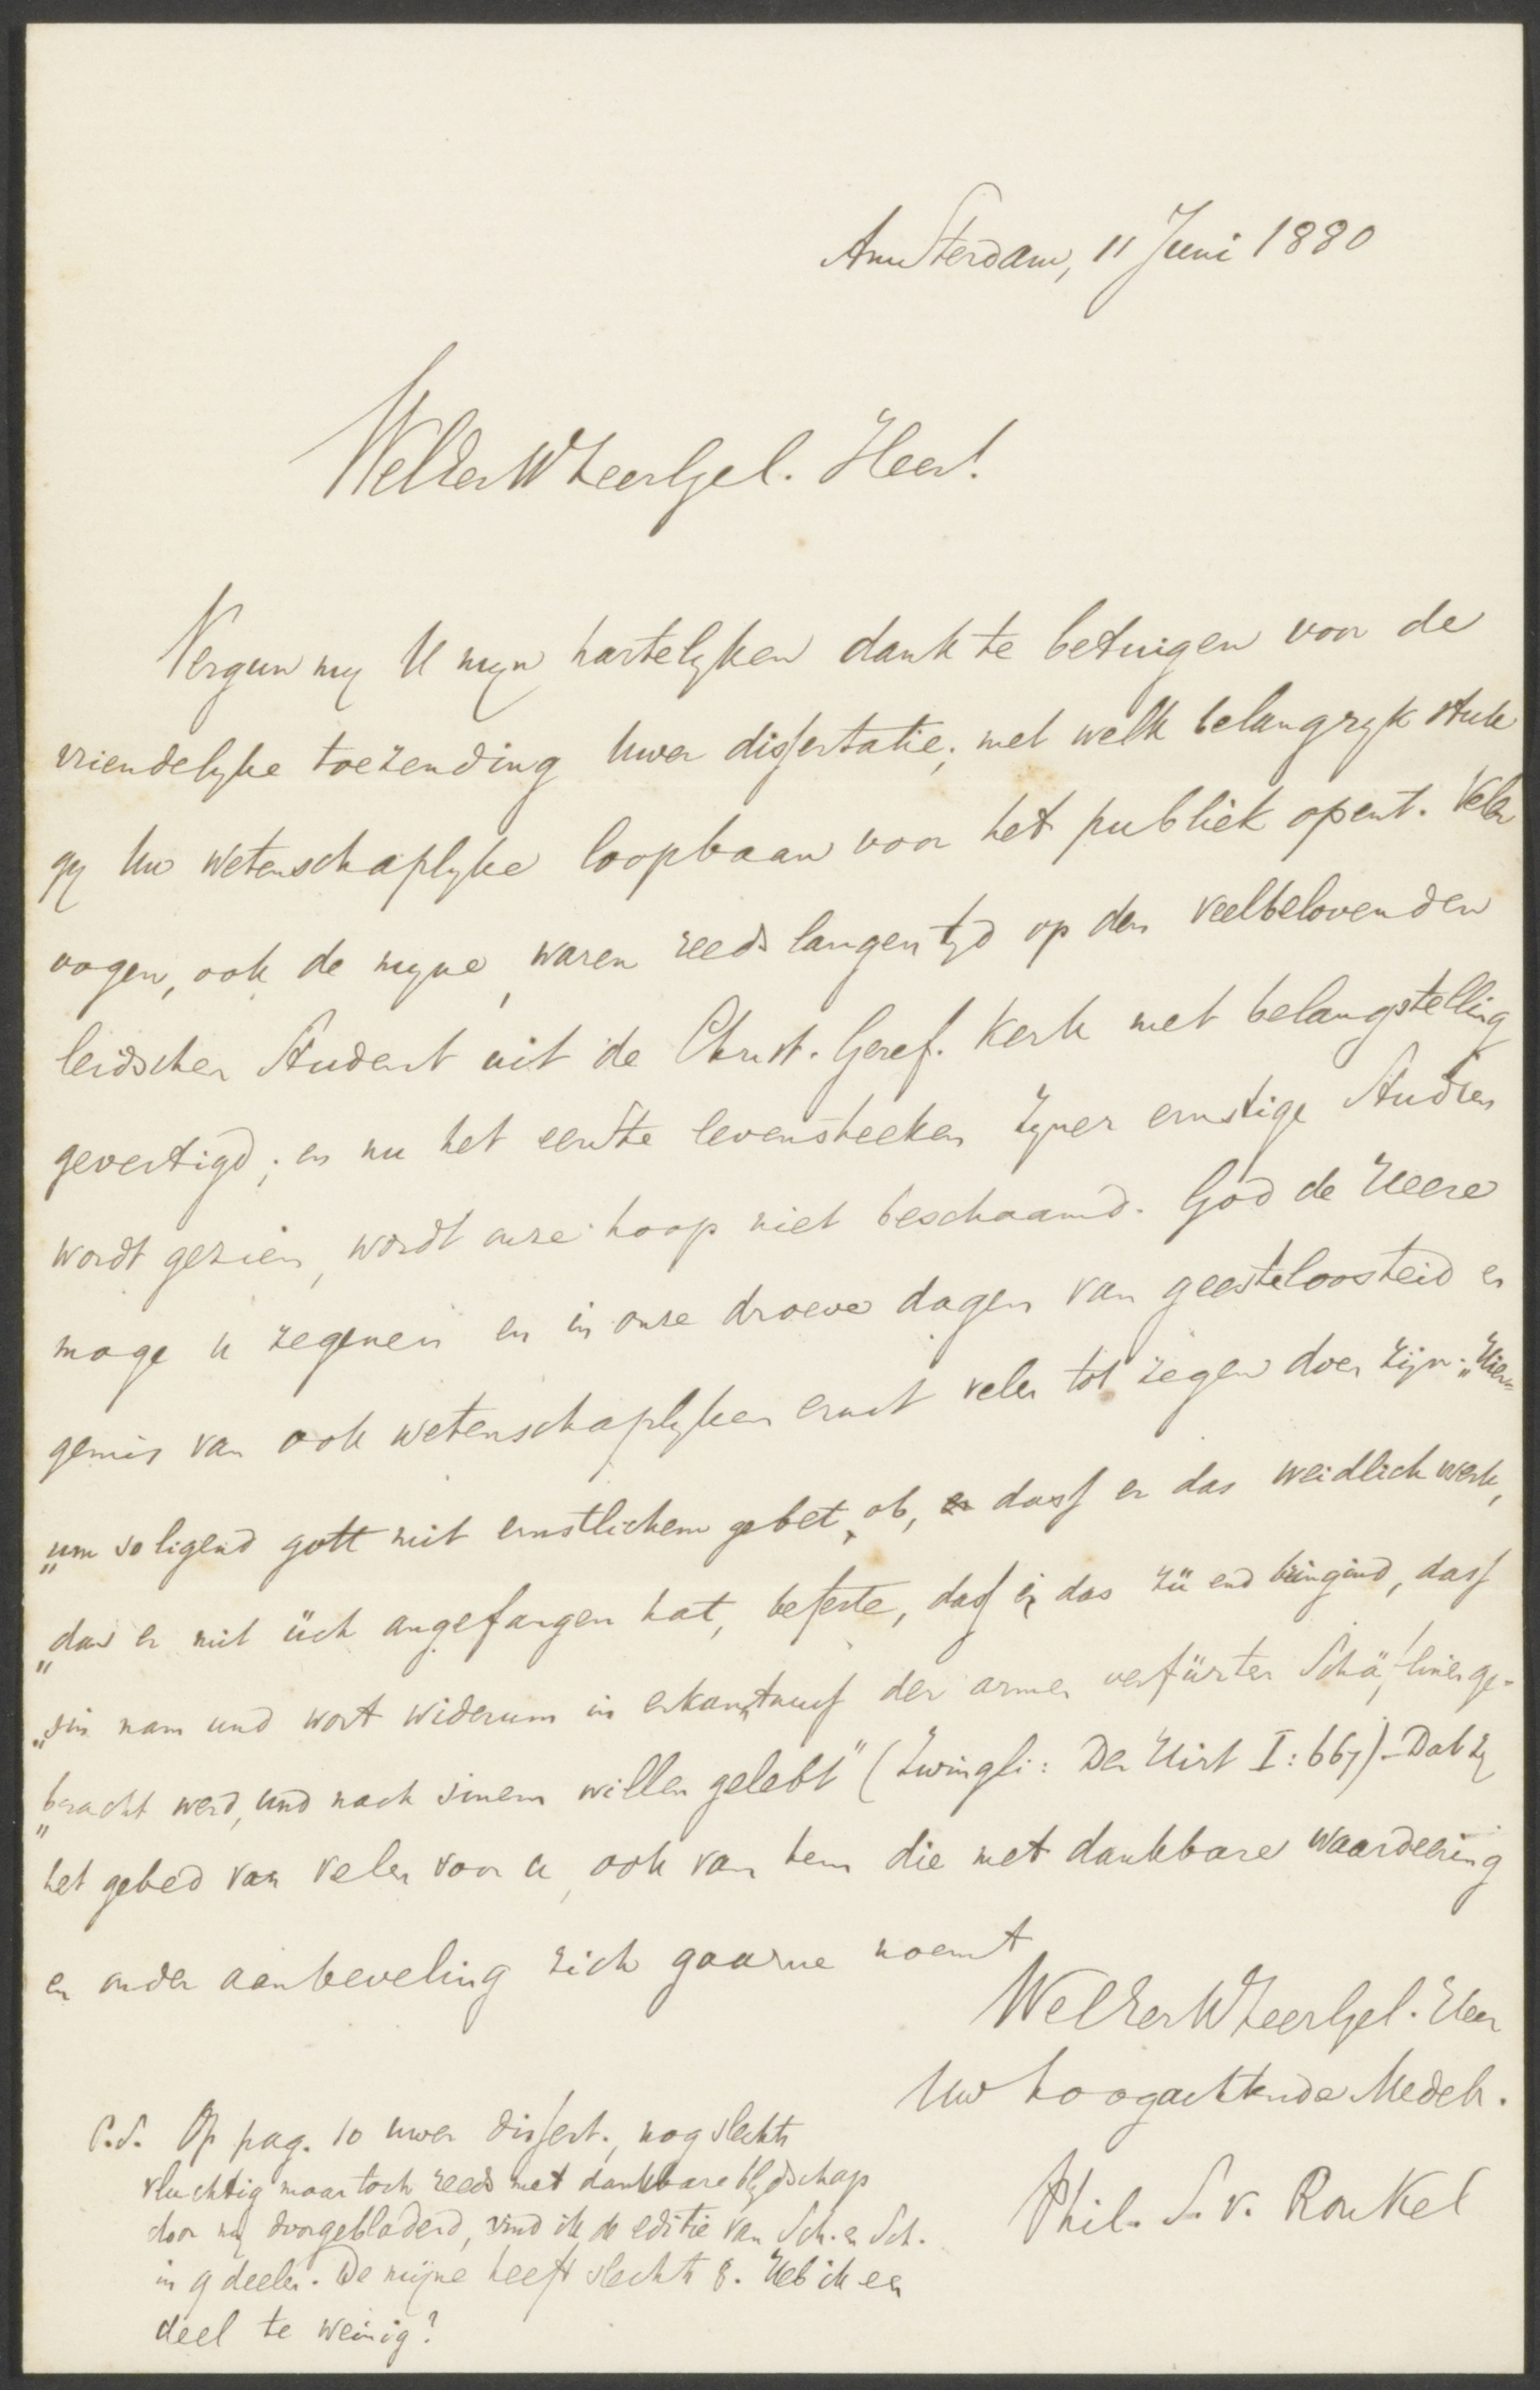 Amsterdam, 11 Juni 1880
WelEerwZeerGel. Heer!
Vergun my U myn hartelyken dank te betuigen voor de
vriendelyke toezending Uwer dissertatie, met welk belangryk stuk
gy Uw wetenschaplyke loopbaan voor het publiek opent. Veler
oogen, ook de myne, waren reeds langen tyd op den veelbelovenden
leidschen Student uit de Christ. Geref. Kerk met belangstelling
gevestigd; en nu het eerste levensteeken zyner ernstige Studien
wordt gezien, wordt onze hoop niet beschaamd. God de Heere
moge u zegenen en in onze droeve dagen van geesteloosheid en
gemis van ook wetenschaplyken ernst velen tot zegen doen zijn. „Hier-
„um so ligend gott mit ernstlichem gebet ob, dass er das weidlich werk,
„das er mit üch angefangen hat, befeste, dass ir das zü end bringind, dass
„sin nam und wort widerum in erkanntnuss der armen verfürten Schäflinen ge-
„bracht werd, und nach sinem willen gelebt" (Zwingli: Der Hirt I: 667) - Dat zy
het gebed van velen voor u, ook van hem die met dankbare waardeering
en onder aanbeveling zich gaarne noemt
WelEerwZeerGel. Heer
Uw hoogachtende Medebr.
Phil. S. v. Ronkel
P.S. Op pag. 10 uwer dissert., nog slechts
vluchtig maar toch reeds met dankbare blydschap
door my doorgebladerd, vind ik de editie van Sch. en Sch.
in 9 deelen. De mijne heeft slechts 8. Heb ik een
deel te weinig?